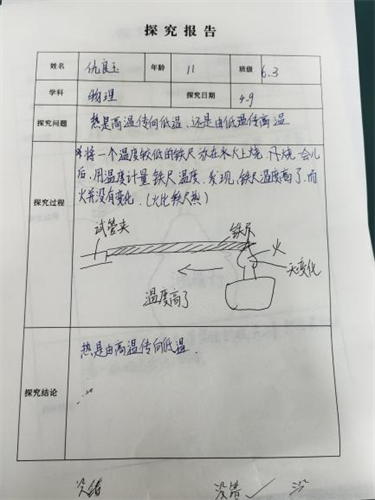 探究报告
姓名 仇良玉 年龄 11 班级 6.3
学科 物理 探究日期 4.9
探究问题 热是高温传向低温,还是由低温传高温
将一个温度较低的铁尺放在火上烧,烧一会儿
后,用温度计量铁尺温度,发现,铁尺温度高了,而
火并没有变化.(火比铁尺热)
探究过程
试管夹 铁尺
火
无变化
温度高了
热是由高温传向低温.
探究结论
没错 没错